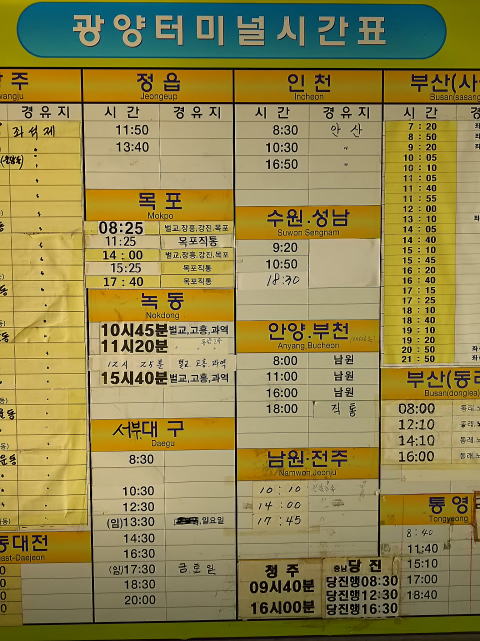 광양터미널시간표
주
wangju
경유지
좌석제
동대전
ast-Daejeon
정읍
Jeongeup
시간 경유지
11:50
13:40
목포
Mokpo
08:25 벌교,장흥,강진,목포
11:25 목포직통
14:00 벌교,장흥,강진,목포
15:25 목포직통
17:40 목포직통
녹동
Nokdong
10시45분 벌교,고흥,과역
11시20분
12시 25분 벌교 고흥 과역
15시40분 벌교,고흥,과역
서부대구
Daegu
8:30
10:30
12:30
(임)13:30 일요일
14:30
16:30
(임)17:30 금토일
18:30
20:00
인천
Incheon
시간 경유지
8:30 안산
10:30 "
16:50
수원.성남
Suwon Sengnam
9:20
10:50
18:30
안양.부천
Anyang.Bucheon
8:00 남원
11:00 남원
16:00 남원
18:00 직통
남원.전주
Namwon.Jeonju
10:10
14:00
17:45
청주
09시40분
16시00분
충남당진
당진행08:30
당진행12:30
당진행16:30
부산(사
Busan(sasang
시간 경유지
7:20
8:50
9:20
10:05
10:10
11:05
11:40
11:55
12:00
13:10
14:05
14:40
15:10
15:45
16:20
16:40
17:15
17:25
18:10
18:40
19:10
19:20
20:50
21:50
부산(동래
Busan(donglea)
08:00 동래,노
12:10 동래,노
14:10 동래,노
16:00 동래,노
통영
Tongyeong
8:40
11:40
15:10
17:00
18:40